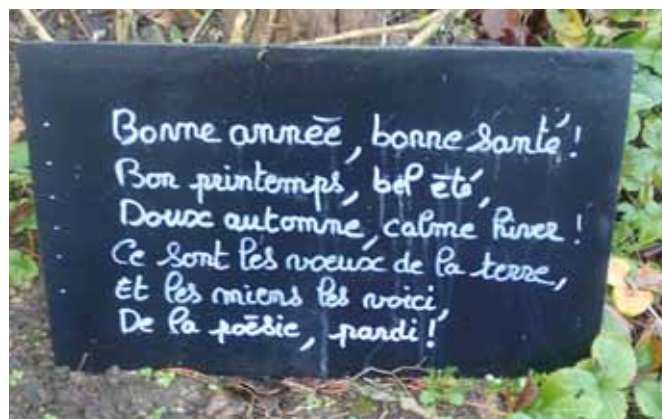 Bonne année, bonne santé !
Bon printemps, bel été,
Doux automne, calme hiver !
Ce sont les vœux de la terre,
Et les miens les voici,
De la poésie, pardi !